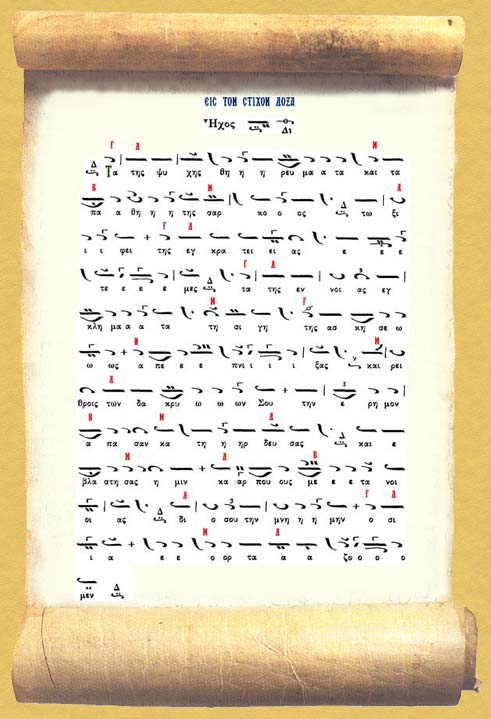 ΕΙΣ ΤΟΝ ΣΤΙΧΟΝ ΔΟΞΑ
Ἦχος Δι
Τα της ψυ χης θη η η ρευ μα α τα και τα
πα α θη η η της σαρ κο ο ος τω ξι
ι ι φει της εγ κρα τει ει ας ε ε ε
τε ε ε ε μες τα της εν νοι ας εγ
κλη μα α α τα τη σι γη της ασ κη σε ω
ω ως α πε ε ε πνι ι ι ι ξας και ρει
θροις των δα κρυ ω ω ων Σου την ε ρη μον
α πα σαν κα τη η ηρ δευ σας και ε
βλα στη σας η μιν κα αρ που ους με ε ε τα νοι
οι ας δι ο σου την μνη η η μην ο σι
ι α ε ε ο ορτ α α α ζο ο ο ο
μεν